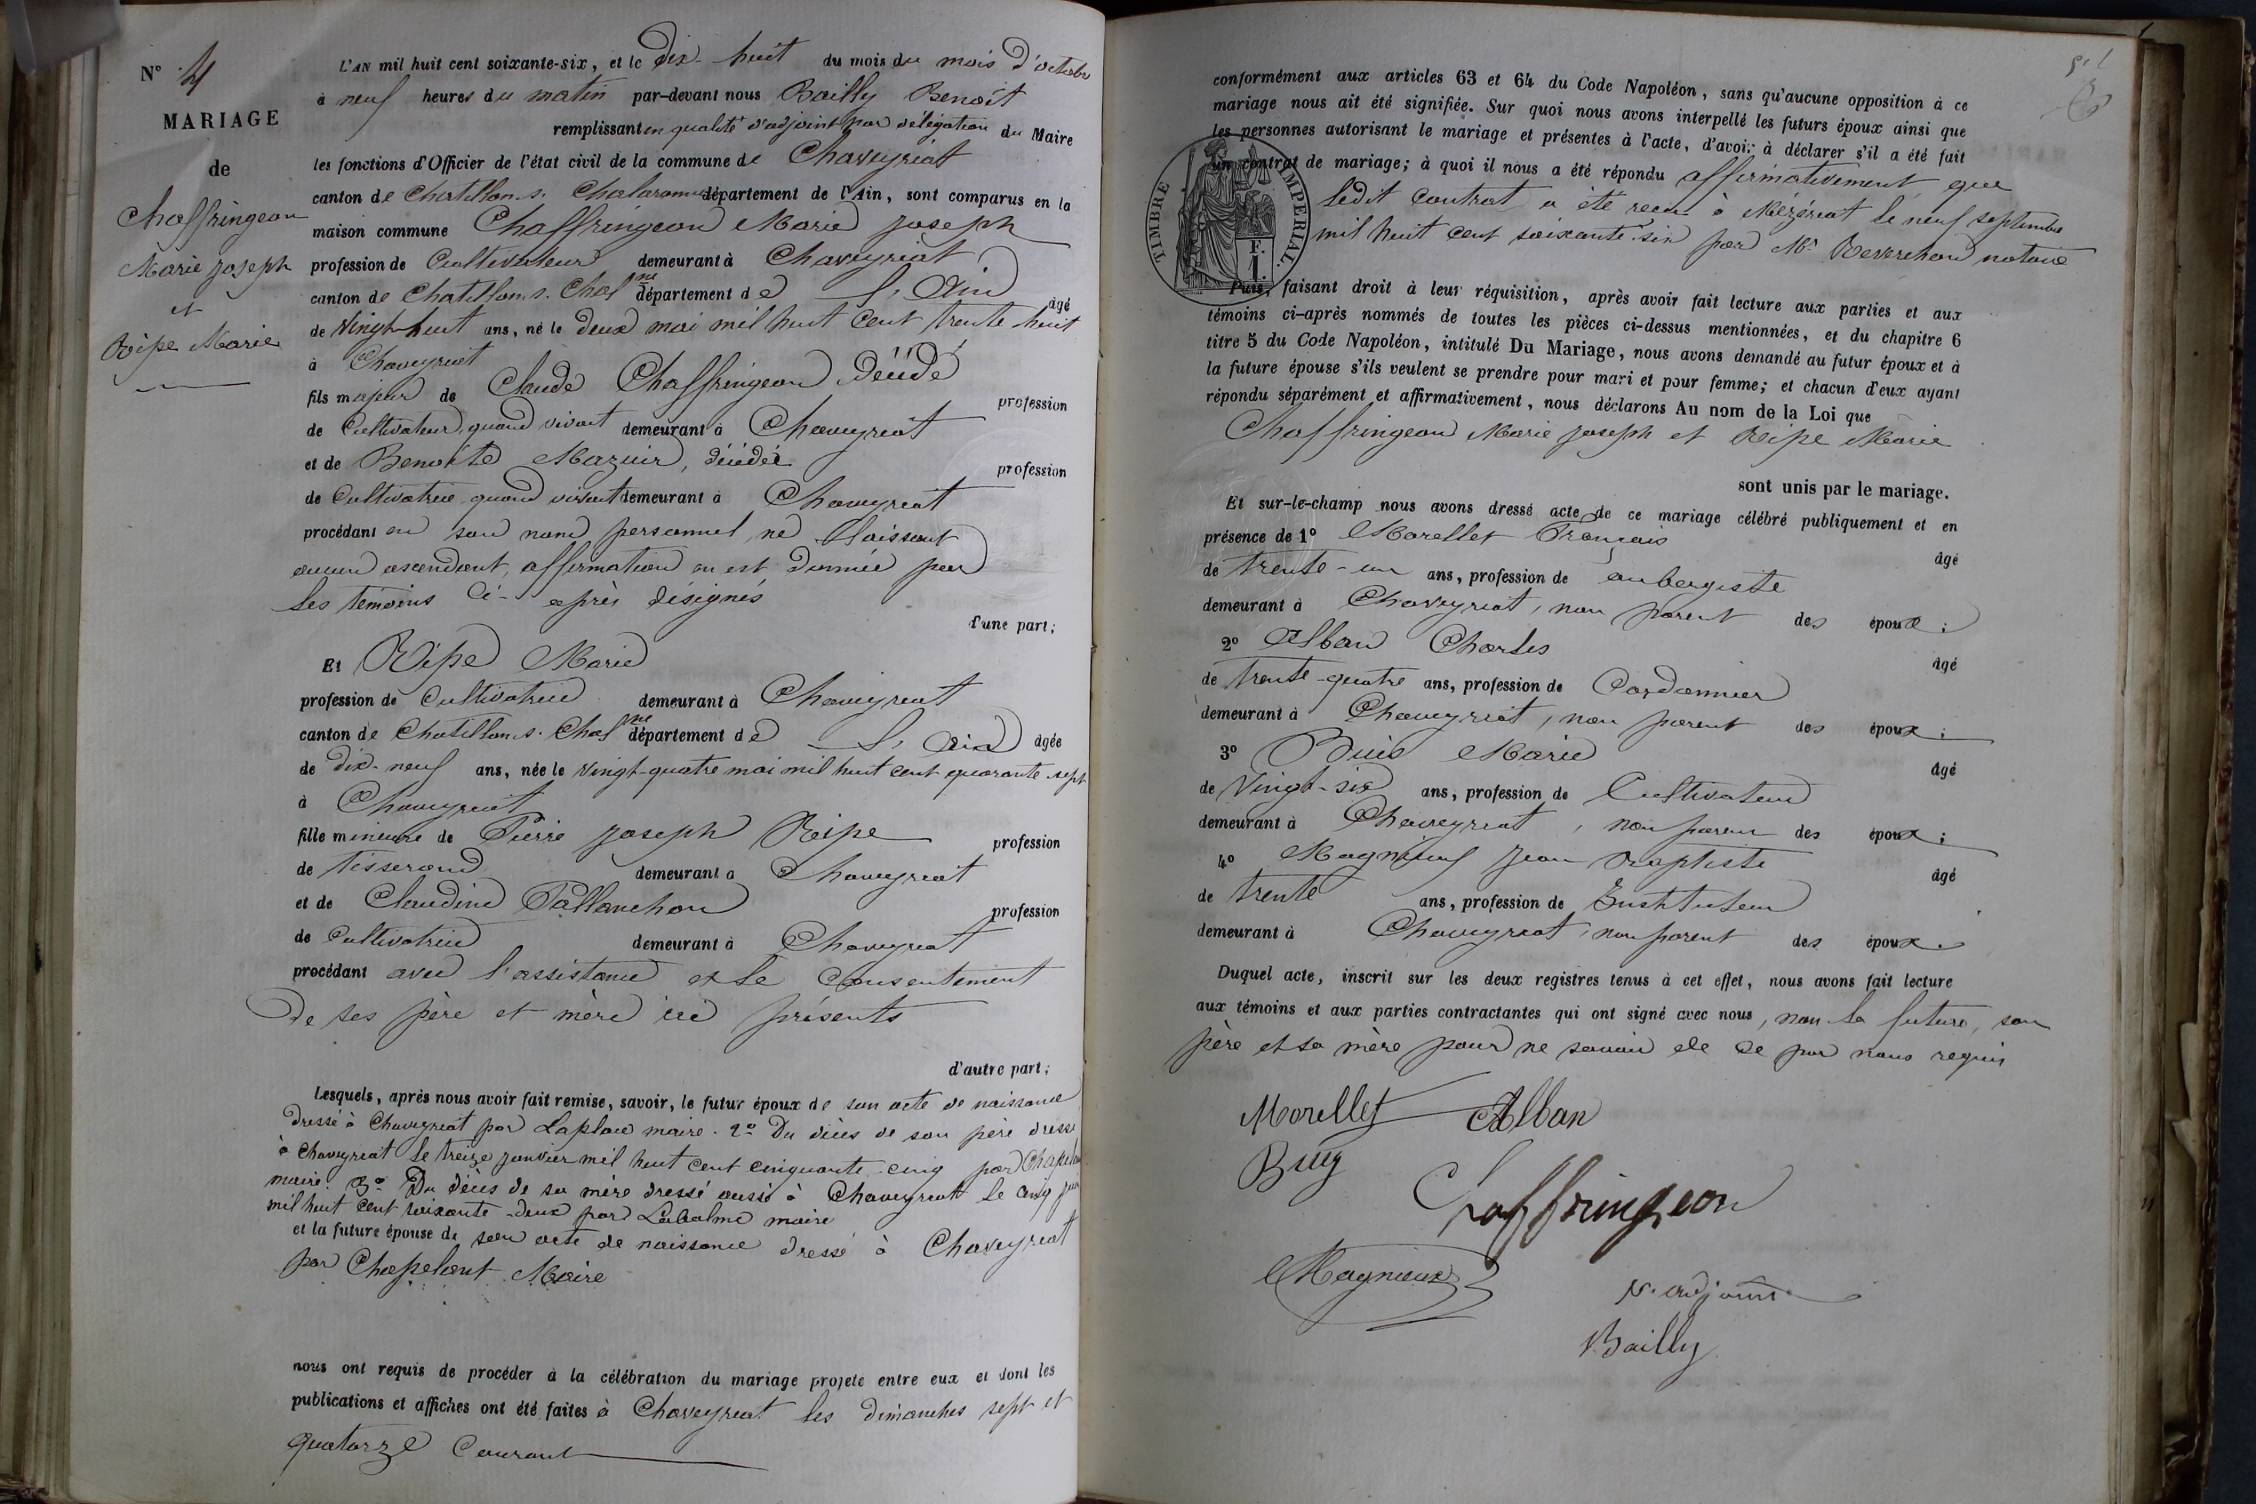 N° 4
MARIAGE
de
Chaffringeon
Marie Joseph
et
Ripe Marie
L'AN mil huit cent soixante-six, et le Dix-huit du mois du mois d'octobre
à neuf heures du matin par-devant nous Bailly Benoît
remplissant en qualité d'adjoint par délégation du Maire
les fonctions d'Officier de l'état civil de la commune de Chaveyriat
canton de Chatillon s. Chalaronne département de l'Ain, sont comparus en la
maison commune Chaffringeon Marie Joseph
profession de Cultivateur demeurant à Chaveyriat
canton de Chatillon s. Chal ne département de L'Ain âgé
de vingt-huit ans, né le deux mai mil huit cent trente huit
à Chaveyriat
fils majeur de Claude Chaffringeon décédé profession
de Cultivateur quand vivant demeurant à Chaveyriat
et de Benoîte Mazuir, décédée profession
de Cultivatrice quand vivant demeurant à Chaveyriat
procédant en son nom personnel ne laissant
aucun ascendant, affirmation en est donnée par
les témoins ci-après désignés
d'une part;
Et Ripe Marie
profession de Cultivatrice demeurant à Chaveyriat
canton de Chatillon s. Chal ne département de L'Ain âgée
de dix-neuf ans, née le vingt-quatre mai mil huit cent quarante sept
à Chaveyriat
fille mineure de Pierre Joseph Ripe profession
de tisserand demeurant à Chaveyriat
et de Claudine Pallanchon profession
de Cultivatrice demeurant à Chaveyriat
procédant avec l'assistance et le consentement
de ses père et mère ici présents
d'autre part;
Lesquels, après nous avoir fait remise, savoir, le futur époux de son acte de naissance
dressé à Chaveyriat par Laplace maire. 2° Du décès de son père dressé
à Chaveyriat le treize janvier mil huit cent cinquante-cinq par Chapelant
maire. 3° Du décès de sa mère dressé aussi à Chaveyriat le cinq
mil huit cent soixante-deux par Labalme maire
et la future épouse de son acte de naissance dressé à Chaveyriat
par Chapelant Maire
nous ont requis de procéder à la célébration du mariage projeté entre eux et dont les
publications et affiches ont été faites à Chaveyriat les dimanches sept et
quatorze Courant
conformément aux articles 63 et 64 du Code Napoléon, sans qu'aucune opposition à ce
mariage nous ait été signifiée. Sur quoi nous avons interpellé les futurs époux ainsi que
les personnes autorisant le mariage et présentes à l'acte, d'avoir à déclarer s'il a été fait
un contrat de mariage; à quoi il nous a été répondu affirmativement que
ledit contrat a été reçu à Mézériat le neuf septembre
mil huit cent soixante-six par Me Reverchon notaire
TIMBRE IMPERIAL
F.
1.
Puis, faisant droit à leur réquisition, après avoir fait lecture aux parties et aux
témoins ci-après nommés de toutes les pièces ci-dessus mentionnées, et du chapitre 6
titre 5 du Code Napoléon, intitulé Du Mariage, nous avons demandé au futur époux et à
la future épouse s'ils veulent se prendre pour mari et pour femme; et chacun d'eux ayant
répondu séparément et affirmativement, nous déclarons Au nom de la Loi que
Chaffringeon Marie Joseph et Ripe Marie
sont unis par le mariage.
Et sur-le-champ nous avons dressé acte de ce mariage célébré publiquement et en
présence de 1° Morellet François âgé
de trente-un ans, profession de aubergiste
demeurant à Chaveyriat, non parent des époux;
2° Alban Charles âgé
de trente-quatre ans, profession de Cordonnier
demeurant à Chaveyriat, non parent des époux;
3° Buis Marie âgé
de vingt-six ans, profession de Cultivateur
demeurant à Chaveyriat, non parent des époux;
4° Jean Baptiste âgé
de trente ans, profession de Instituteur
demeurant à Chaveyriat, non parent des époux.
Duquel acte, inscrit sur les deux registres tenus à cet effet, nous avons fait lecture
aux témoins et aux parties contractantes qui ont signé avec nous, non la future, son
père et sa mère pour ne savoir de ce par nous requis
Morellet Alban
Chaffringeon
Magnieux
adjoint
Bailly